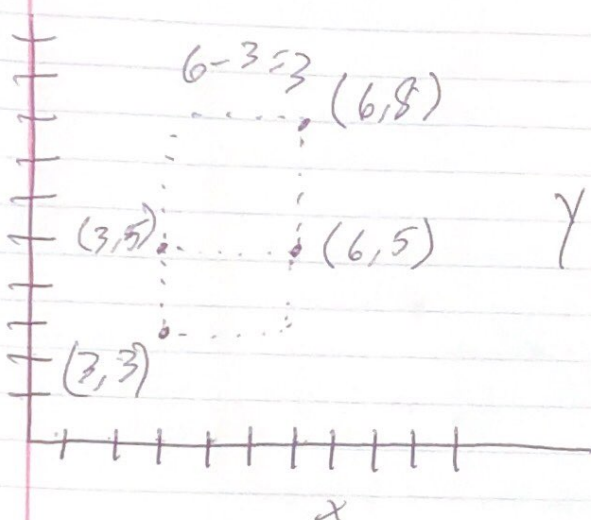 6-3=3
(6,8)
(3,5)
(6,5)
Y
(3,3)
x